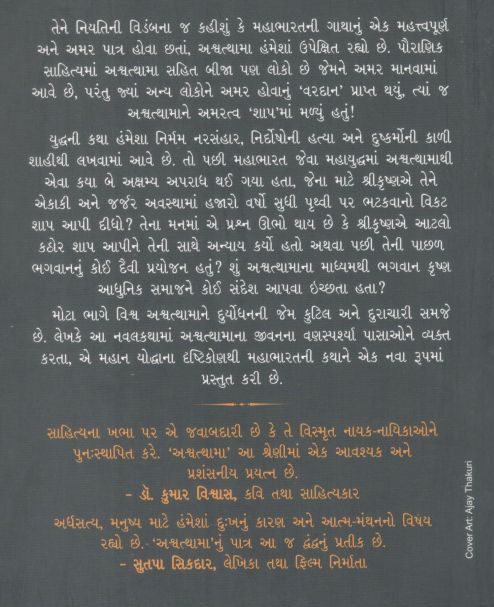 તેને નિયતિની વિડંબના જ કહીશું કે મહાભારતની ગાથાનું એક મહત્ત્વપૂર્ણ
અને અમર પાત્ર હોવા છતાં, અશ્વત્થામા હંમેશાં ઉપેક્ષિત રહ્યો છે. પૌરાણિક
સાહિત્યમાં અશ્વત્થામા સહિત બીજા પણ લોકો છે જેમને અમર માનવામાં
આવે છે, પરંતુ જ્યાં અન્ય લોકોને અમર હોવાનું ‘વરદાન’ પ્રાપ્ત થયું, ત્યાં જ
અશ્વત્થામાને અમરત્વ ‘શાપ’માં મળ્યું હતું!
યુદ્ધની કથા હંમેશા નિર્મમ નરસંહાર, નિર્દોષોની હત્યા અને દુષ્કર્મોની કાળી
શાહીથી લખવામાં આવે છે. તો પછી મહાભારત જેવા મહાયુદ્ધમાં અશ્વત્થામાથી
એવા કયા બે અક્ષમ્ય અપરાધ થઈ ગયા હતા, જેના માટે શ્રીકૃષ્ણએ તેને
એકાકી અને જર્જર અવસ્થામાં હજારો વર્ષો સુધી પૃથ્વી પર ભટકવાનો વિકટ
શાપ આપી દીધો? તેના મનમાં એ પ્રશ્ન ઊભો થાય છે કે શ્રીકૃષ્ણએ આટલો
કઠોર શાપ આપીને તેની સાથે અન્યાય કર્યો હતો અથવા પછી તેની પાછળ
ભગવાનનું કોઈ દૈવી પ્રયોજન હતું? શું અશ્વત્થામાના માધ્યમથી ભગવાન કૃષ્ણ
આધુનિક સમાજને કોઈ સંદેશ આપવા ઇચ્છતા હતા?
મોટા ભાગે વિશ્વ અશ્વત્થામાને દુર્યોધનની જેમ કુટિલ અને દુરાચારી સમજે
છે. લેખકે આ નવલકથામાં અશ્વત્થામાના જીવનના વણસ્પર્શ્યા પાસાઓને વ્યક્ત
કરતા, એ મહાન યોદ્ધાના દૃષ્ટિકોણથી મહાભારતની કથાને એક નવા રૂપમાં
પ્રસ્તુત કરી છે.
સાહિત્યના ખભા પર એ જવાબદારી છે કે તે વિસ્મૃત નાયક-નાયિકાઓને
પુનઃસ્થાપિત કરે. ‘અશ્વત્થામા’ આ શ્રેણીમાં એક આવશ્યક અને
પ્રશંસનીય પ્રયત્ન છે.
- ડૉ. કુમાર વિશ્વાસ, કવિ તથા સાહિત્યકાર
અર્ધસત્ય, મનુષ્ય માટે હંમેશાં દુઃખનું કારણ અને આત્મ-મંથનનો વિષય
રહ્યો છે. ‘અશ્વત્થામા’નું પાત્ર આ જ દ્વંદ્વનું પ્રતીક છે.
- સુતપા સિકદાર, લેખિકા તથા ફિલ્મ નિર્માતા
Cover Art: Ajay Thakuri